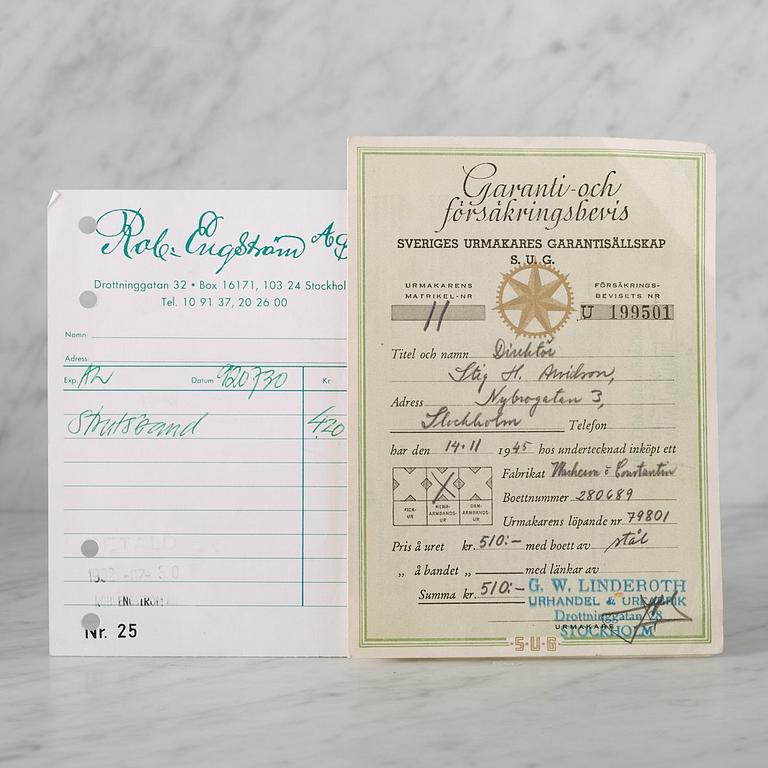 Rob. Engström AB
Drottninggatan 32 • Box 16171, 103 24 Stockhol
Tel. 10 91 37, 20 26 00
Namn:
Adress:
Exp. Datum 920730 Kr
Strutsband 420
ROB. ENGSTRÖM
Nr. 25
Garanti- och
försäkringsbevis
SVERIGES URMAKARES GARANTISÄLLSKAP
S. U. G.
URMAKARENS
MATRIKEL-NR
11
FÖRSÄKRINGS-
BEVISETS NR
U 199501
Titel och namn Direktör
Stig H. Arvidson,
Adress Nybrogatan 3,
Stockholm Telefon
har den 14.11 1945 hos undertecknad inköpt ett
FICK-
UR
HERR-
ARMBANDS-
UR
DAM-
ARMBANDS-
UR
Fabrikat Vacheron & Constantin
Boettnummer 280689
Urmakarens löpande nr 79801
Pris å uret kr. 510:- med boett av stål
„ å bandet „ med länkar av
Summa kr. 510:-
G. W. LINDEROTH
URHANDEL & URFABRIK
Drottninggatan 28
STOCKHOLM
URMAKARE
S·U·G